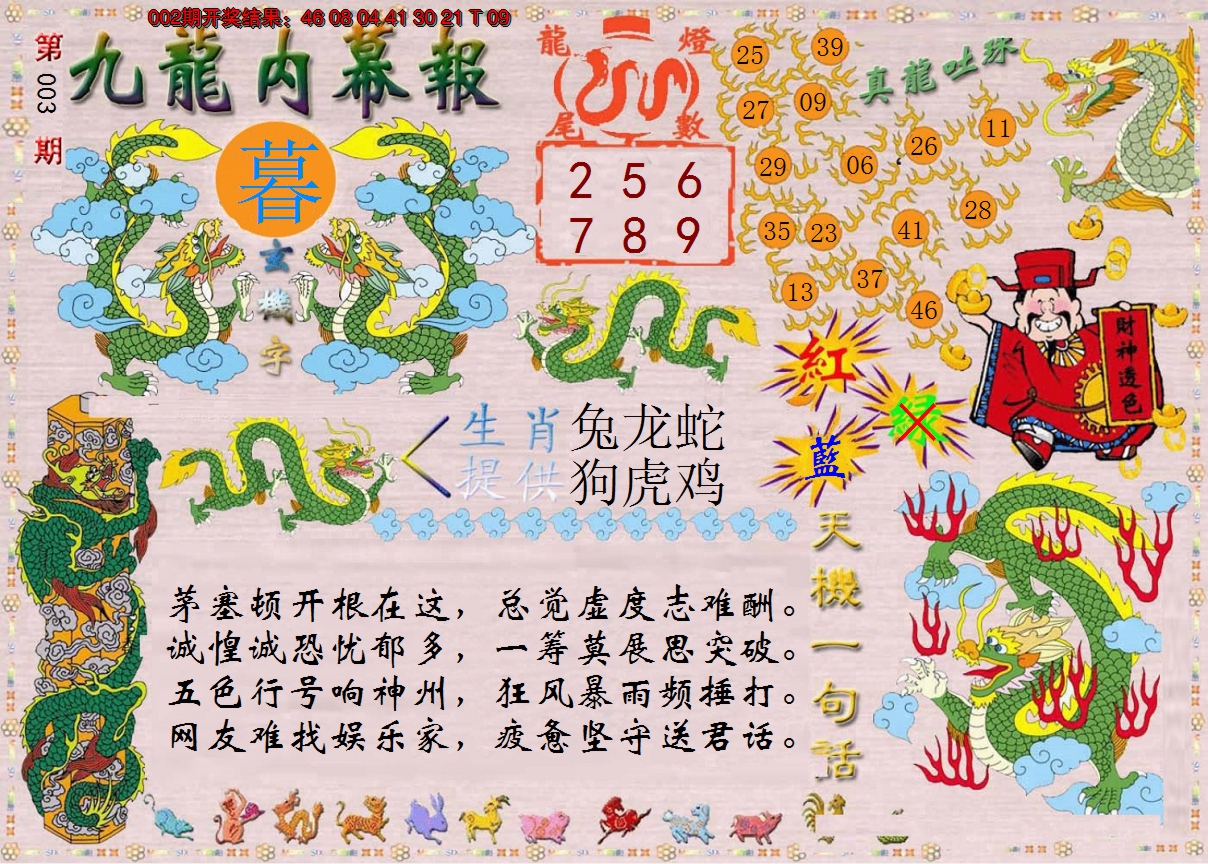 002期开奖结果：46 08 04 41 30 21 T 09
第003期
九龍内幕報
暮
玄機字
龍燈
尾數
2 5 6
7 8 9
真龍吐珠
25
39
27
09
11
26
29
06
28
35
23
41
37
13
46
財神透色
紅
绿
藍
生肖提供
兔龙蛇
狗虎鸡
天機一句話
茅塞顿开根在这，总觉虚度志难酬。
诚惶诚恐忧郁多，一筹莫展思突破。
五色行号响神州，狂风暴雨频捶打。
网友难找娱乐家，疲惫坚守送君话。